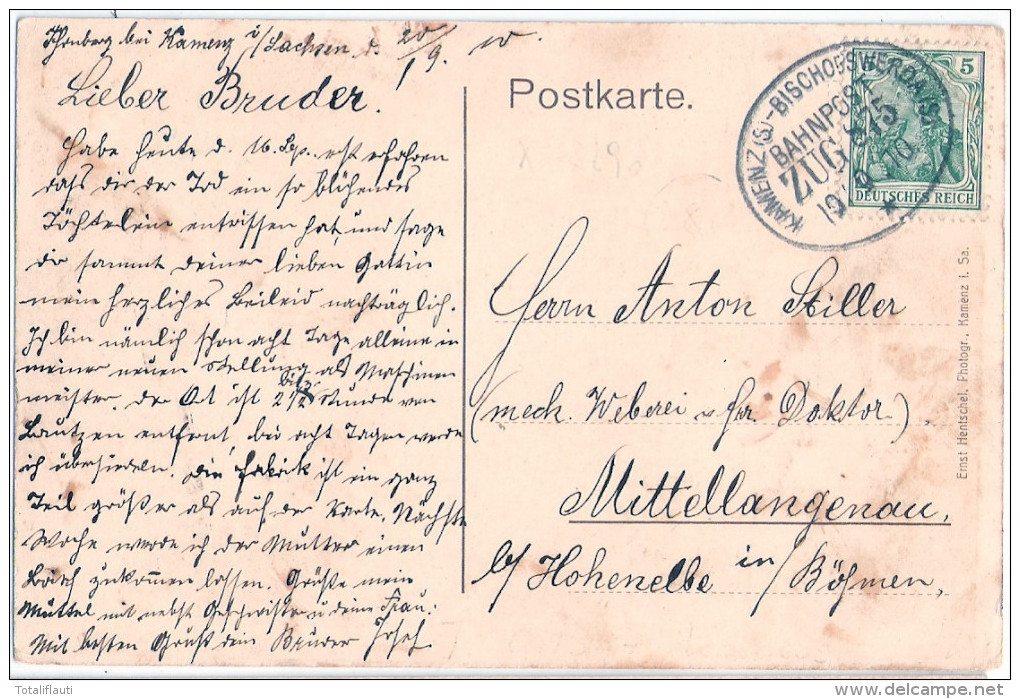 bei Kamenz i/Sachsen d. 20/9. 10.
Lieber Bruder!
habe heute d. 16. Sep. erst erfahren
dass dir der Tod ein so blühendes
Töchterlein entrissen hat, und sage
dir sammt deiner lieben Gattin
mein herzliches Beileid nachträglich.
Ich bin nämlich schon acht Tage alleine in
meiner neuen Stellung als Maschinen
meister. der Ort ist 2 1/2 Stunde von
Bautzen entfernt, bei acht Tagen werde
ich übersiedeln. die Fabrik ist ein ganz
Teil größer als auf der Karte. Nächste
Woche werde ich der Mutter einen
zukommen lassen. Grüße mein
Muttel mit nebst Geschwister u deine Frau.
Mit besten Gruß dein Bruder Josef.
Postkarte.
KAMENZ (S.)-BISCHOFSWERDA (S.)
BAHNPOST
ZUG
5
DEUTSCHES REICH
Herrn Anton Stiller
(mech. Weberei Doktor)
Mittellangenau,
b/ Hohenelbe in / Böhmen,
Ernst Hentschel, Photogr., Kamenz i. Sa.
Totaliflauti
delcampe.net